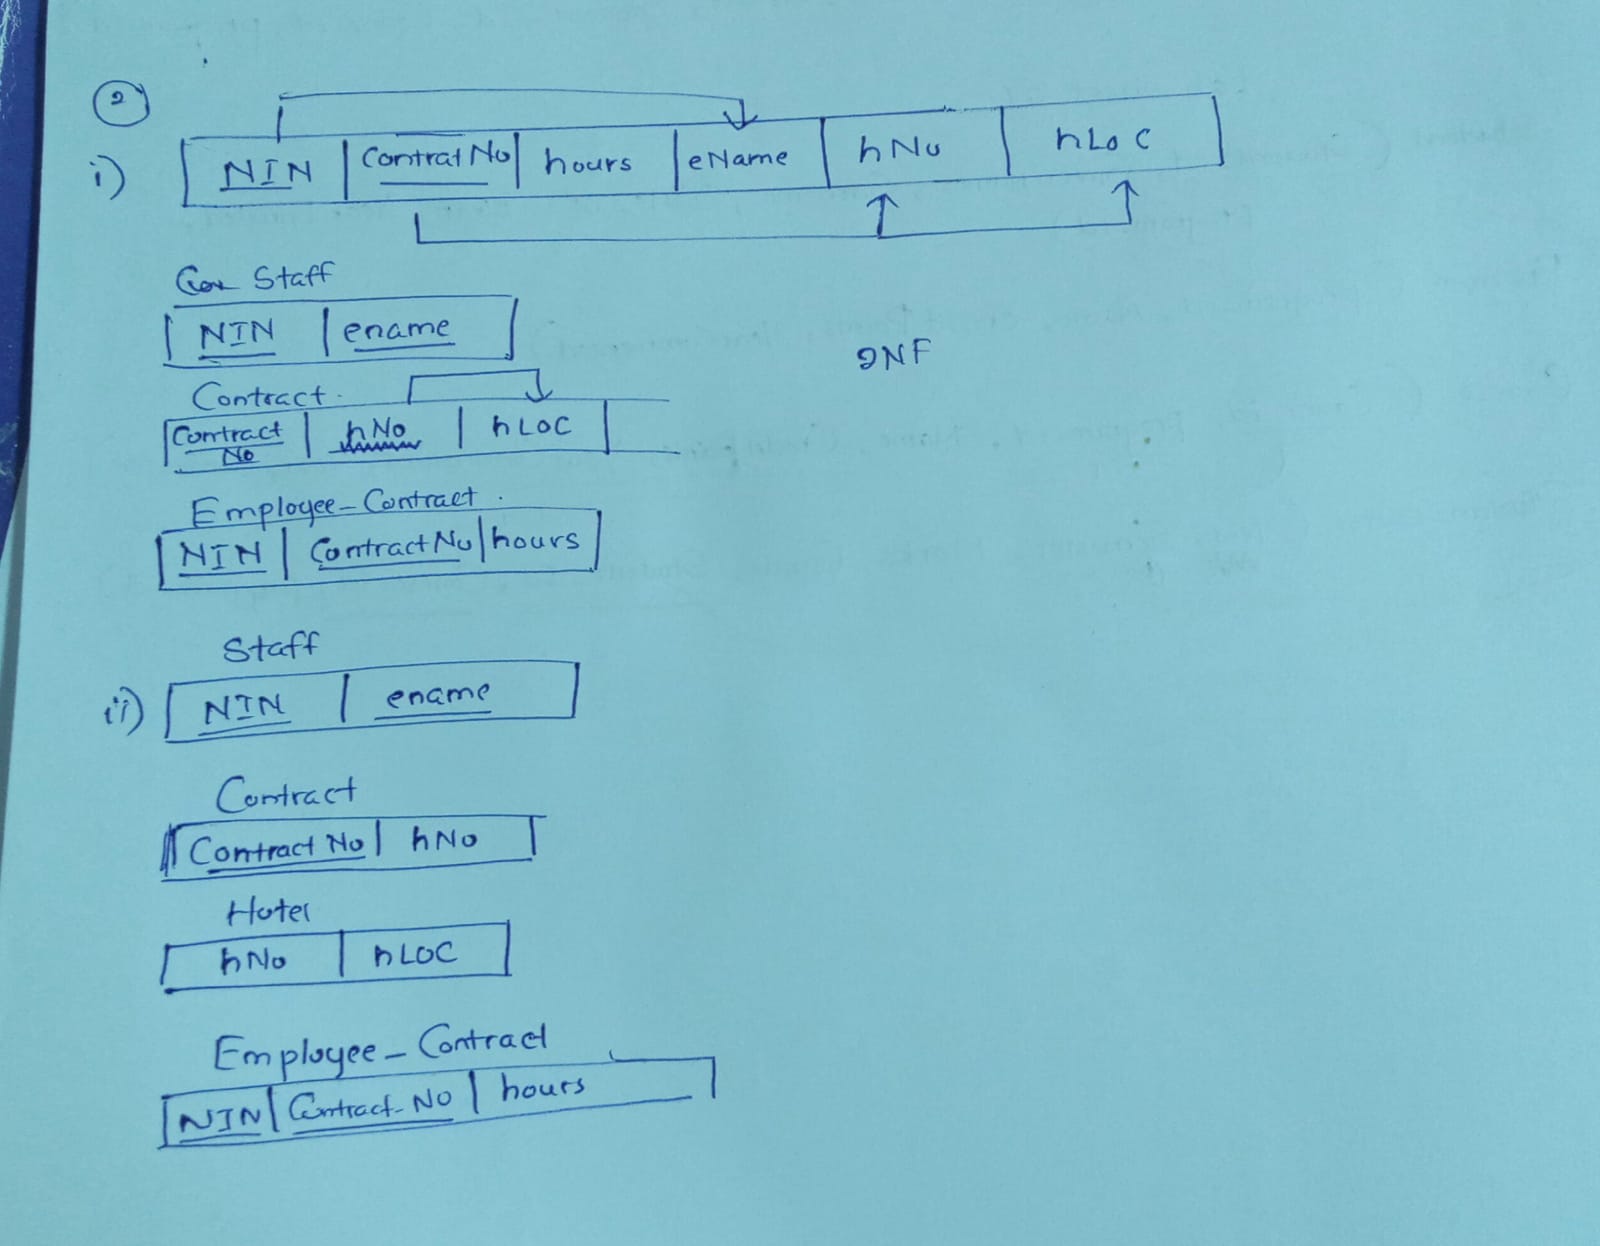 2
i) NIN Contrat No hours eName hNo hLoC
Staff
NIN ename
2NF
Contract
Contract No hNo hLOC
Employee-Contract
NIN ContractNo hours
Staff
ii) NIN ename
Contract
Contract No hNo
Hotel
hNo hLOC
Employee-Contract
NIN Contract-No hours